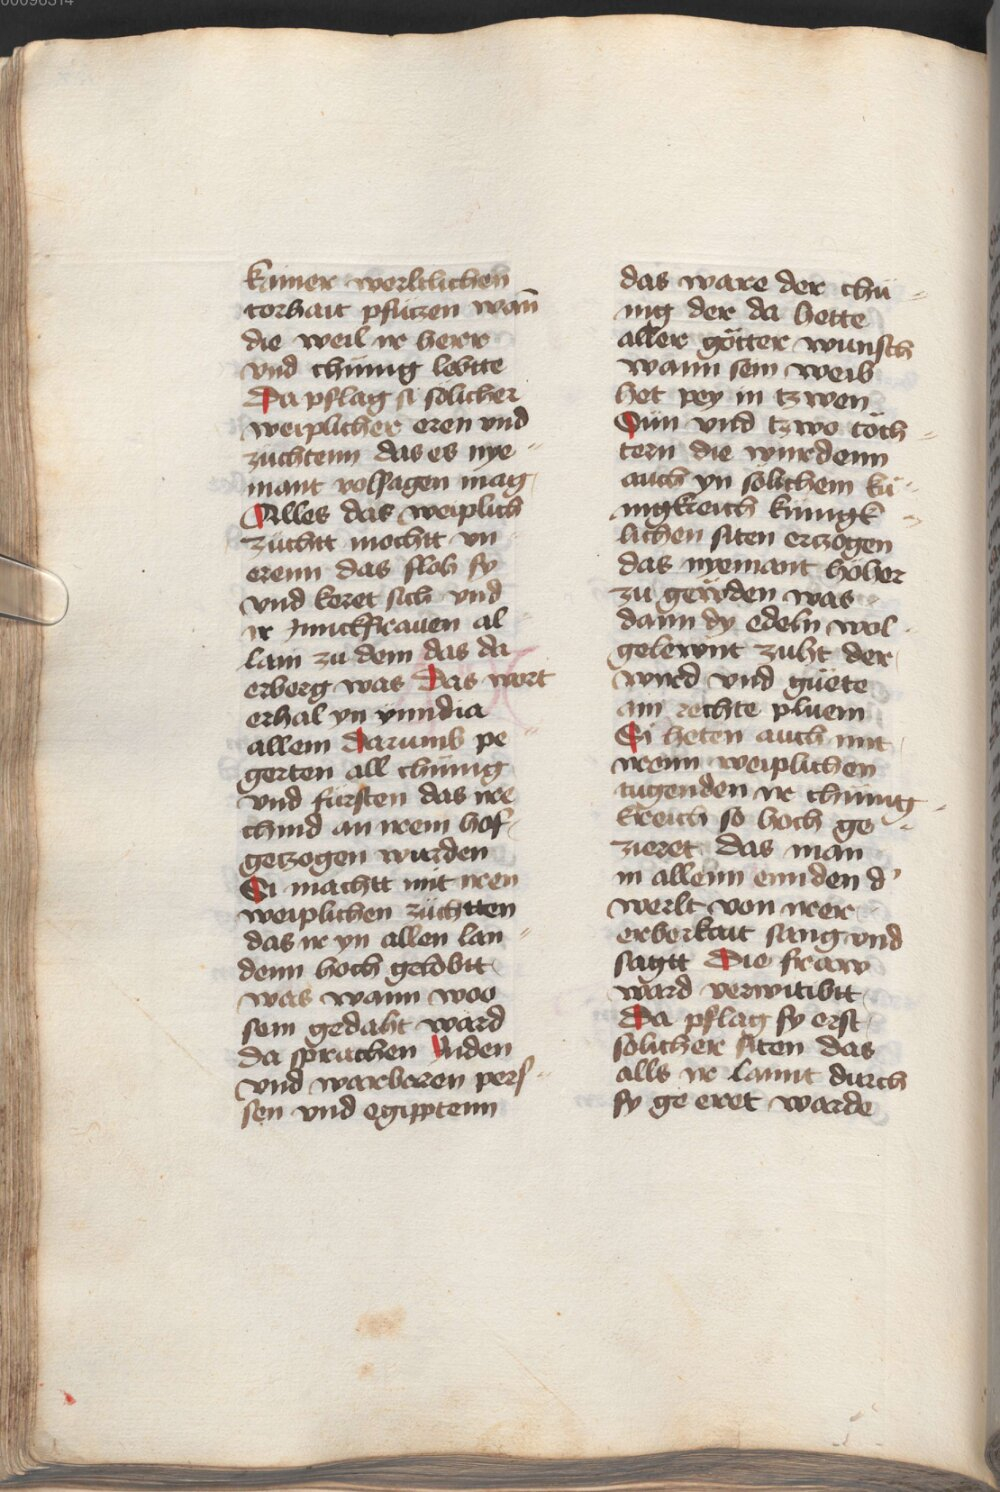 kainer werltlichen
torhait pfützen wan̄
die weil ir herr
vnd chünig lebtte
Da pflag si solicher
weiplicher eren vnd
züchtenn das es nye¬
mant volsagen mag
Alles das weiplich
züchtt mochtt vn¬
erenn das floh sy
vnd keret sich vnd
ir junckfrauen al¬
lain zu dem das da
erberg was Das wort
erhal yn yundia
allem Darumb pe¬
gerten all chünig
vnd fürsten das ire
chind an irem hof
getzogen wurden
Si machtt mit iren
weiplichen züchtten
das ir yn allen lan¬
denn hoch gelobtt
was wann woo
sem gedaht ward
da sprachen Juden
vnd warbaren pers¬
sen vnd egipptenn
das ware der chü¬
nig der da hette
aller götter wunsch
wann sein weib
het pey in tzwen
Sün vnd tzwo töch¬
tern die wurdenn
auch yn solichem kü¬
nigkreich künigk¬
lichen siten ertzogen
das nyemant höher
zu
dann dy edeln wol
gelernt zuht der
wird vnd güete
ain rechte pluem
Si heten auch mit
irenn weiplichen
tugenden ir chünig¬
kreich so hoch ge¬
zieret das man
in allenn ennden d'
werlt von irer
erberkait sang vnd
sagtt Die fraw
ward verwitibtt
Da pflag sy erst
solicher siten das
alls ir lannt durch
sy ge eret warde